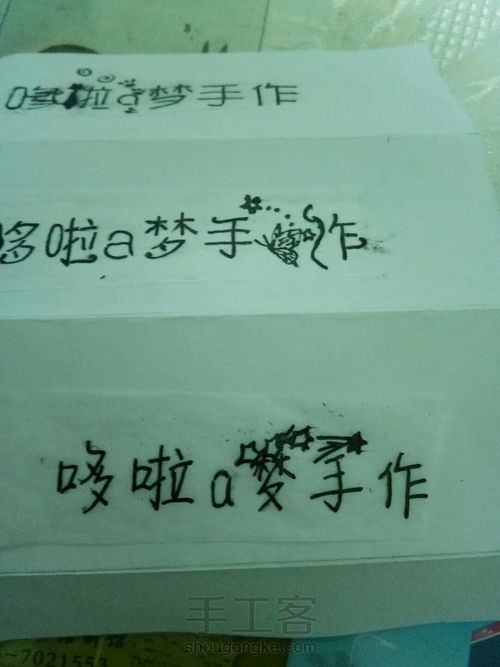 哆啦a梦手作
哆啦a梦手作
哆啦a梦手作
手工客
shougongke.com
-7021553